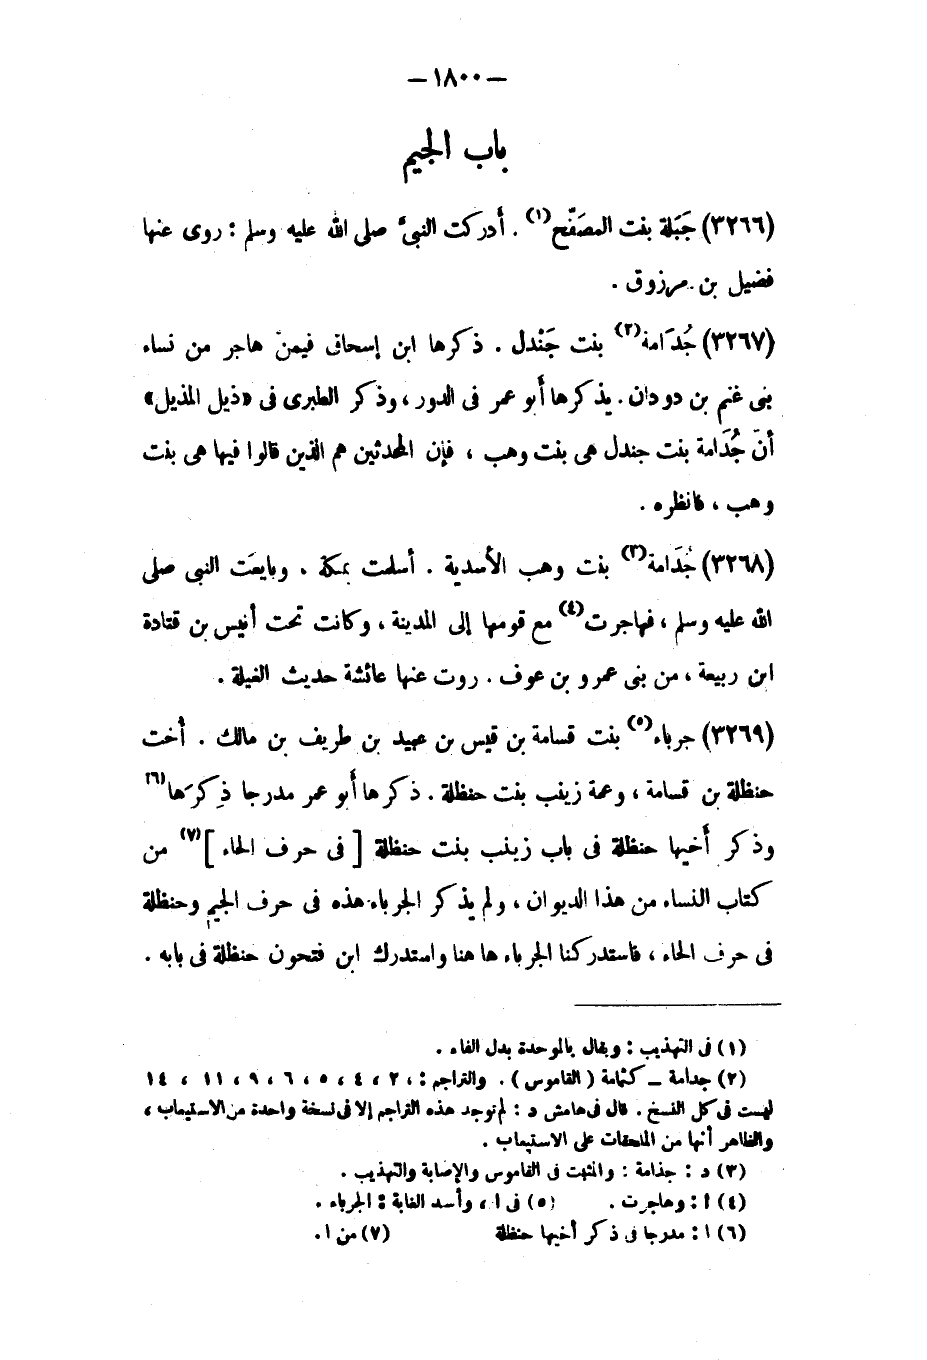 — ١٨٠٠ —
باب الجيم
(٣٢٦٦) جَبَلة بنت المصَفّح(١) . أدركت النبيَّ صلى الله عليه وسلم : روى عنها
فضيل بن مرزوق .
(٣٢٦٧) جُدَامة(٢) بنت جَنْدل . ذكرها ابن إسحاق فيمن هاجر من نساء
بنى غنم بن دودان . يذكرها أبو عمر فى الدور ، وذكر الطبرى فى «ذيل المذيل»
أنّ جُدَامة بنت جندل هى بنت وهب ، فإن المحدثين هم الذين قالوا فيها هى بنت
وهب ، فانظره .
(٣٢٦٨) جُدَامة(٣) بنت وهب الأسدية . أسلمت بمكة . وبايعَت النبى صلى
الله عليه وسلم ، فهاجرت(٤) مع قومها إلى المدينة ، وكانت تحت أنيس بن قتادة
ابن ربيعة ، من بنى عمرو بن عوف . روت عنها عائشة حديث الغيلة .
(٣٢٦٩) جرباء(٥) بنت قسامة بن قيس بن عبيد بن طريف بن مالك . أخت
حنظلة بن قسامة ، وعمة زينب بنت حنظلة . ذكرها أبو عمر مدرجا ذِكرَها(٦)
وذكر أخيها حنظلة فى باب زينب بنت حنظلة [ فى حرف الحاء ](٧) من
كتاب النساء من هذا الديوان ، ولم يذكر الجرباء هذه فى حرف الجيم وحنظلة
فى حرف الحاء ، فاستدركنا الجرباء ها هنا واستدرك ابن فتحون حنظلة فى بابه .
(١) فى التهذيب : ويقال بالموحدة بدل الفاء .
(٢) جدامة – كثمامة ( القاموس ) . والتراجم : ، ٢ ، ٤ ، ٥ ، ٦ ، ٩ ، ١١ ، ١٤
ليست فى كل النسخ . قال فى هامش د : لم توجد هذه التراجم إلا فى نسخة واحدة من الاستيعاب ،
والظاهر أنها من الملحقات على الاستيعاب .
(٣) د : جذامة : والمثبت فى القاموس والإصابة والتهذيب .
(٤) أ : وهاجرت . (٥) فى ا ، وأسد الغابة : الجرباء .
(٦) ا : مدرجا فى ذكر أخيها حنظلة (٧) من ا .